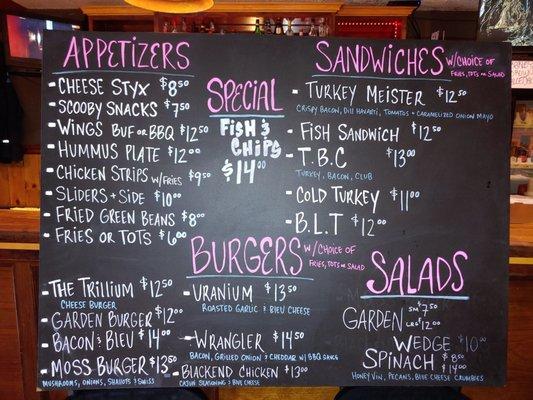 APPETIZERS
- CHEESE STYX $8⁵⁰
- SCOOBY SNACKS $7⁵⁰
- WINGS BUF OR BBQ $12⁵⁰
- HUMMUS PLATE $12⁰⁰
- CHICKEN STRIPS W/FRIES $9⁵⁰
- SLIDERS + SIDE $10⁰⁰
- FRIED GREEN BEANS $8⁰⁰
- FRIES OR TOTS $6⁰⁰
SPECIAL
FISH &
CHIPS
$14⁰⁰
SANDWICHES W/CHOICE OF
FRIES, TOTS OR SALAD
- TURKEY MEISTER $12⁵⁰
CRISPY BACON, DILL HAVARTI, TOMATOS + CARAMELIZED ONION MAYO
- FISH SANDWICH $12⁵⁰
- T.B.C $13⁰⁰
TURKEY, BACON, CLUB
- COLD TURKEY $11⁰⁰
- B.L.T $12⁰⁰
BURGERS W/CHOICE OF
FRIES, TOTS OR SALAD
- THE TRILLIUM $12⁵⁰
CHEESE BURGER
- GARDEN BURGER $12⁰⁰
- BACON & BLEU $14⁰⁰
- MOSS BURGER $13⁵⁰
MUSHROOMS, ONIONS, SHALLOTS & SWISS
- URANIUM $13⁵⁰
ROASTED GARLIC & BLEU CHEESE
- WRANGLER $14⁵⁰
BACON, GRILLED ONION & CHEDDAR W/ BBQ SAUCE
- BLACKEND CHICKEN $13⁰⁰
CAJUN SEASONING & BLUE CHEESE
SALADS
GARDEN SM $7⁵⁰
LRG $12⁰⁰
WEDGE $10⁰⁰
SPINACH $8⁵⁰
$14⁰⁰
HONEY VIN, PECANS, BLUE CHEESE CRUMBLES